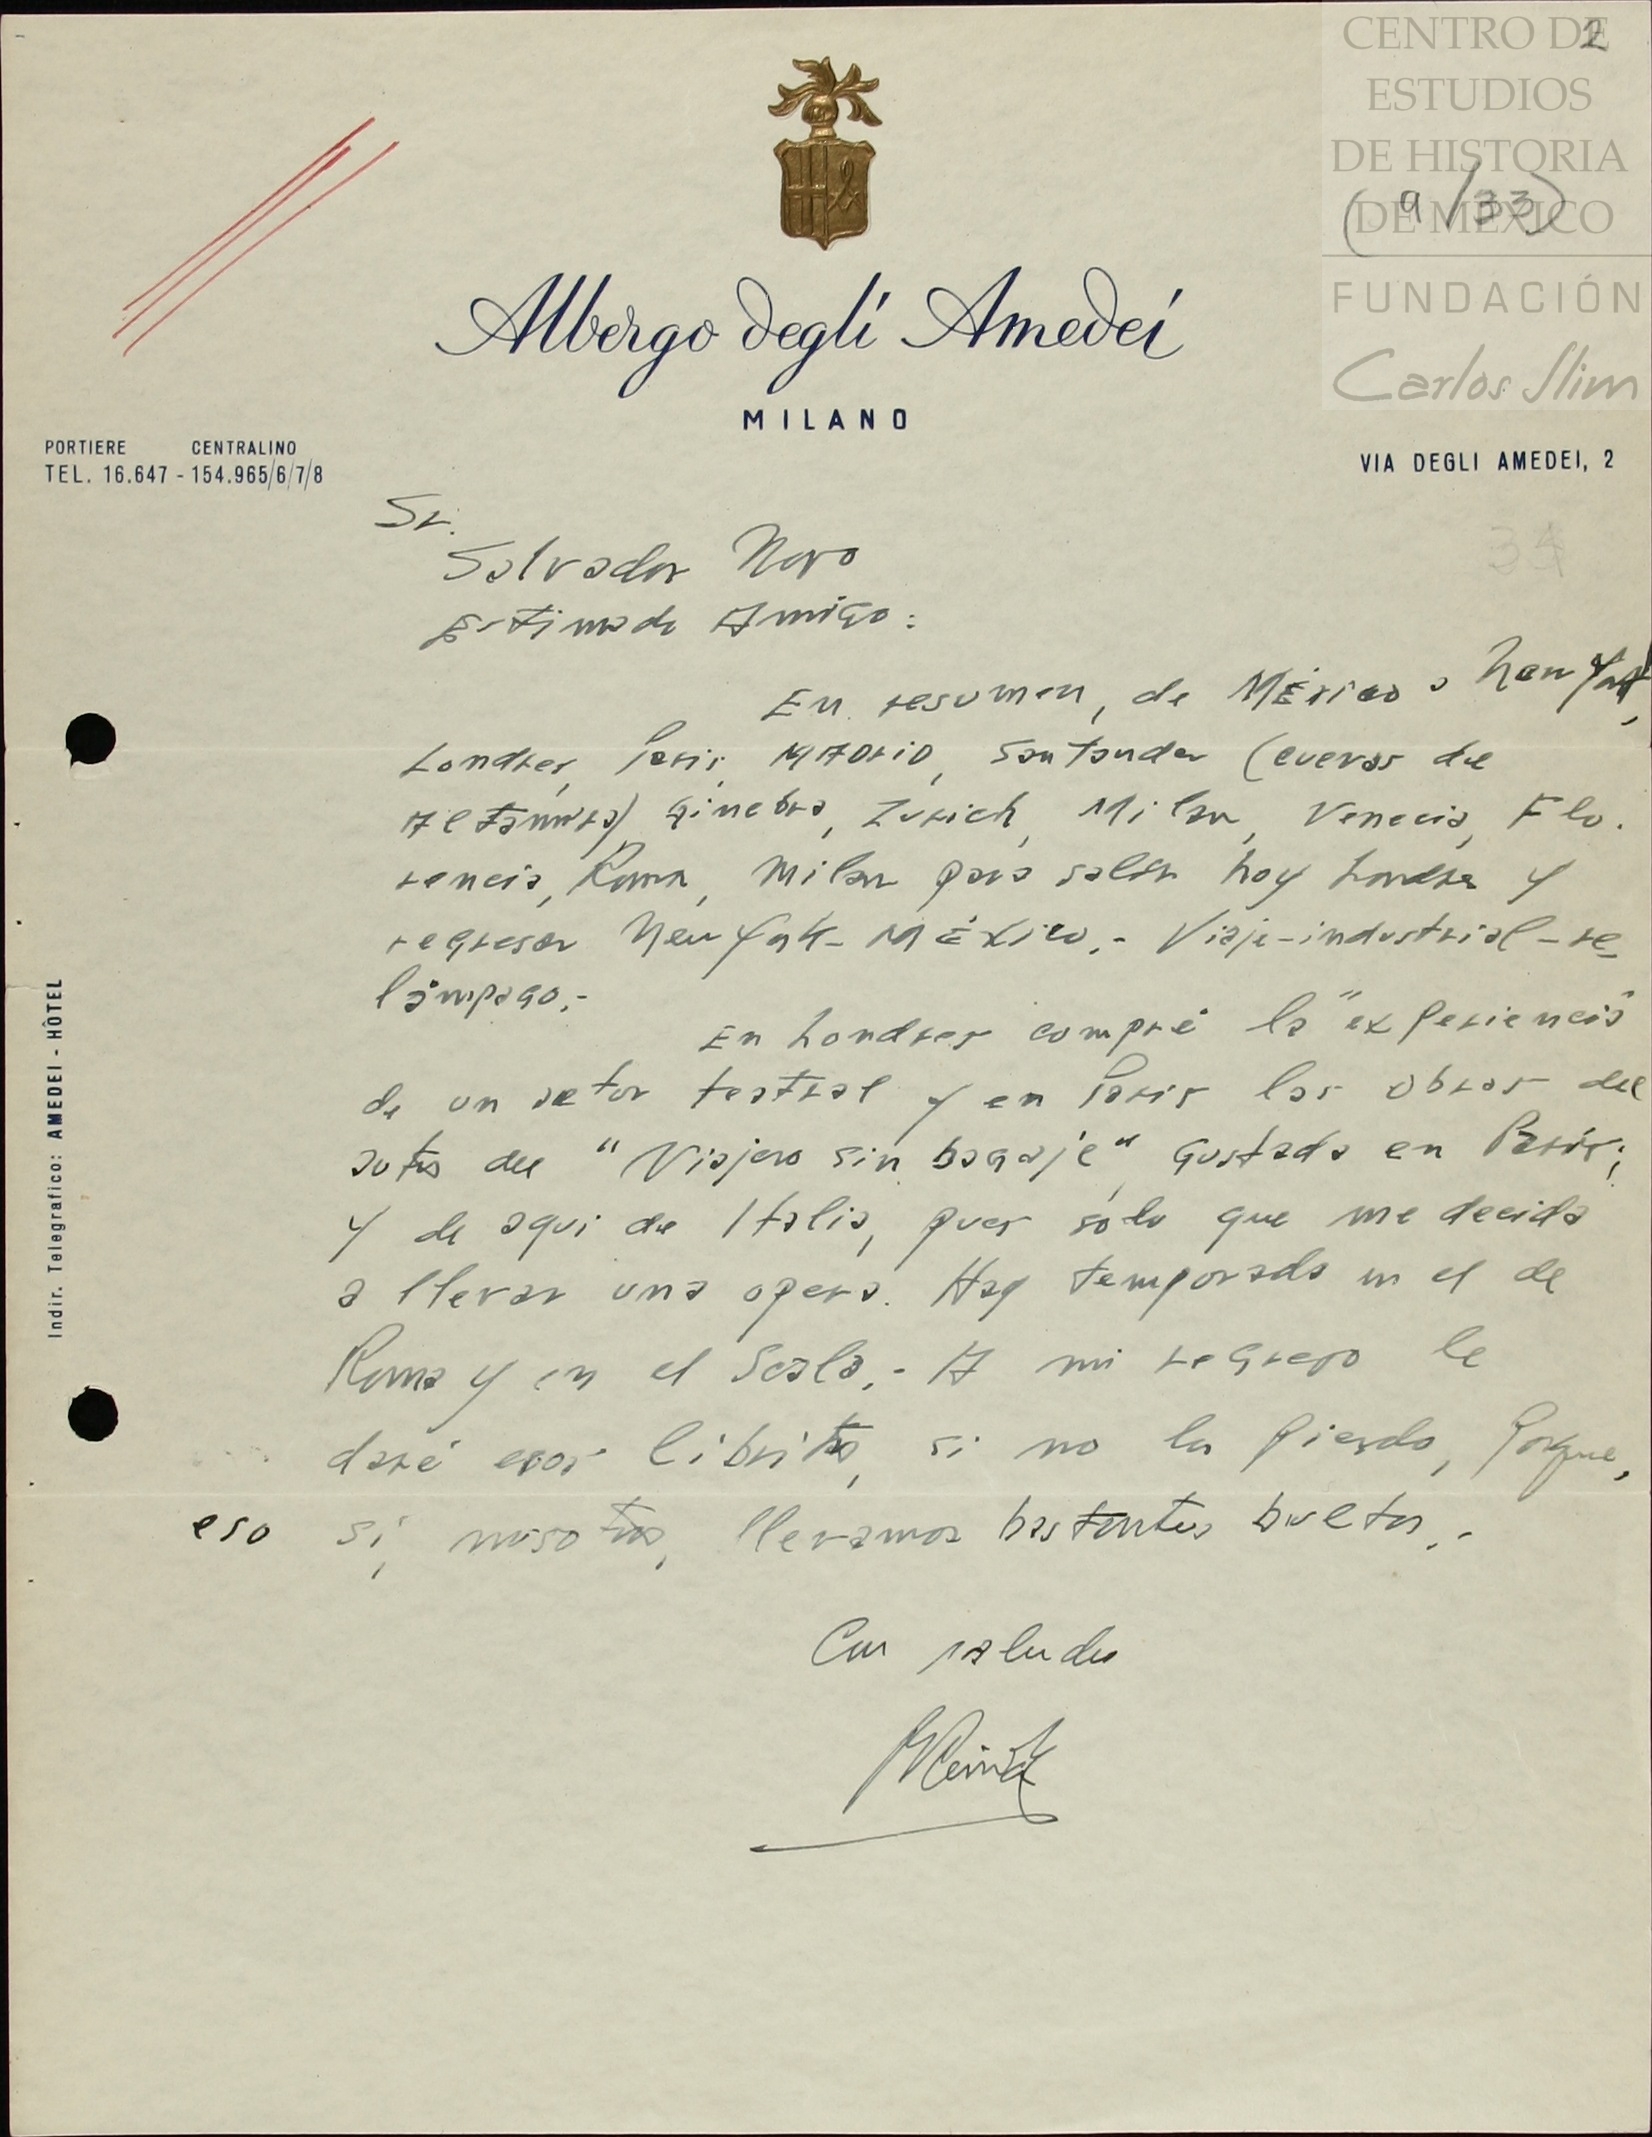 CENTRO DE
ESTUDIOS
DE HISTORIA
DE MÉXICO
FUNDACIÓN
Carlos Slim
2
(9/33)
Albergo degli Amedei
MILANO
PORTIERE CENTRALINO
TEL. 16.647 - 154.965/6/7/8
VIA DEGLI AMEDEI, 2
34
Sr.
Salvador Novo
Estimado Amigo:
En resumen, de México a New York,
Londres, Paris, MADRID, Santander (cuevas de
Altamira) Ginebra, Zurich, Milan, Venecia, Flo.
rencia, Roma, Milan para salir hoy Londres y
regresar New York - MÉXICO.- Viaje-industrial-re
lámpago.-
En Londres compré la "experiencia"
de un actor teatral y en Paris las obras del
autor del "Viajero sin bagaje" gustada en Paris;
y de aqui de Italia, pues sólo que me decida
a llevar una opera. Hay temporada en el de
Roma y en el Scala.- A mi regreso le
daré esos libritos, si no los pierdo, porque,
eso si, nosotros, llevamos bastantes bultos.-
Con saludos
Indir. Telegrafico: AMEDEI - HÔTEL